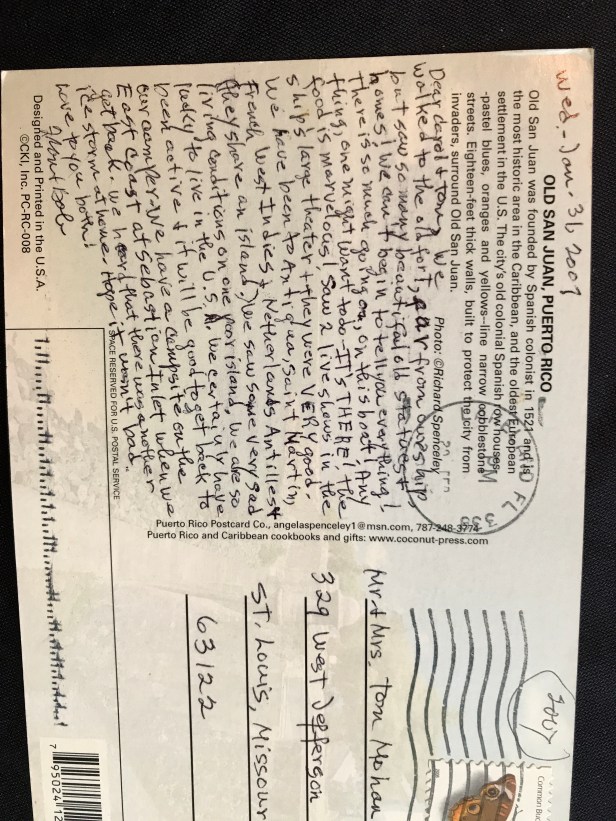 Wed.- Jan. 31, 2007
OLD SAN JUAN, PUERTO RICO
Old San Juan was founded by Spanish colonist in 1521 and is
the most historic area in the Caribbean, and the oldest European
settlement in the U.S. The city's old colonial Spanish row houses
-pastel blues, oranges and yellows-line narrow cobblestone
streets. Eighteen-feet thick walls, built to protect the city from
invaders, surround Old San Juan.
Photo: ©Richard Spenceley
Dear Carol & Tom, We
walked to the old fort, far from our ship,
but saw so many beautiful old
homes! We can't begin to tell you everything!
There is so much going on, on this boat! Any
thing, one might want to do - IT'S THERE! The
food is marvelous! Saw 2 live shows in the
ships large theater & they were VERY good.
We have been to Antigua, Saint Martin,
French West Indies & Netherlands Antilles &
(they share an island.) We saw some very sad
living conditions on one poor island, we are so
lucky to live in the U.S.A. We certainly have
been active & it will be good to get back to
our camper - We have a campsite on the
East Coast at Sebastian Inlet when we
get back. We heard that there was another
ice storm at home. Hope it wasn't bad.
Love to you both!
Designed and Printed in the U.S.A.
©CKI, Inc. PC-RC-008
SPACE RESERVED FOR U.S. POSTAL SERVICE
Puerto Rico Postcard Co., angelaspenceley1@msn.com, 787-248-3774
Puerto Rico and Caribbean cookbooks and gifts: www.coconut-press.com
FL
PM
2007
Common Buc
Mr & Mrs. Tom Mohan
329 West Jefferson
St. Louis, Missour
63122
7 95024 12